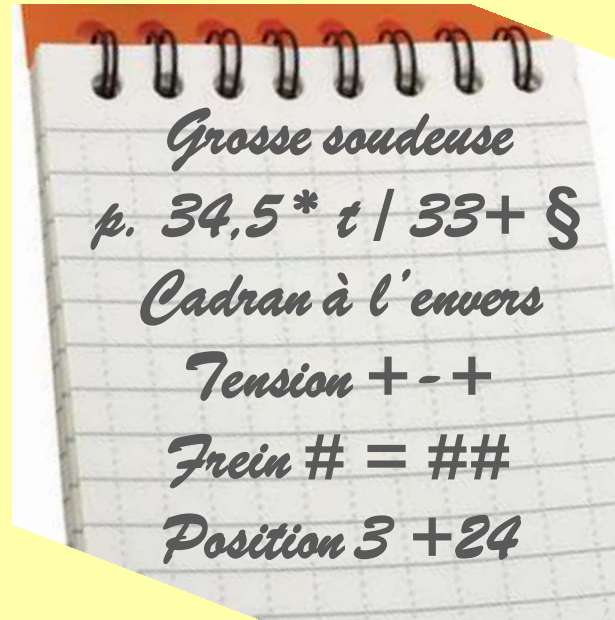 Grosse soudeuse
p. 34,5* t | 33+ §
Cadran à l'envers
Tension + - +
Frein # = ##
Position 3 +24